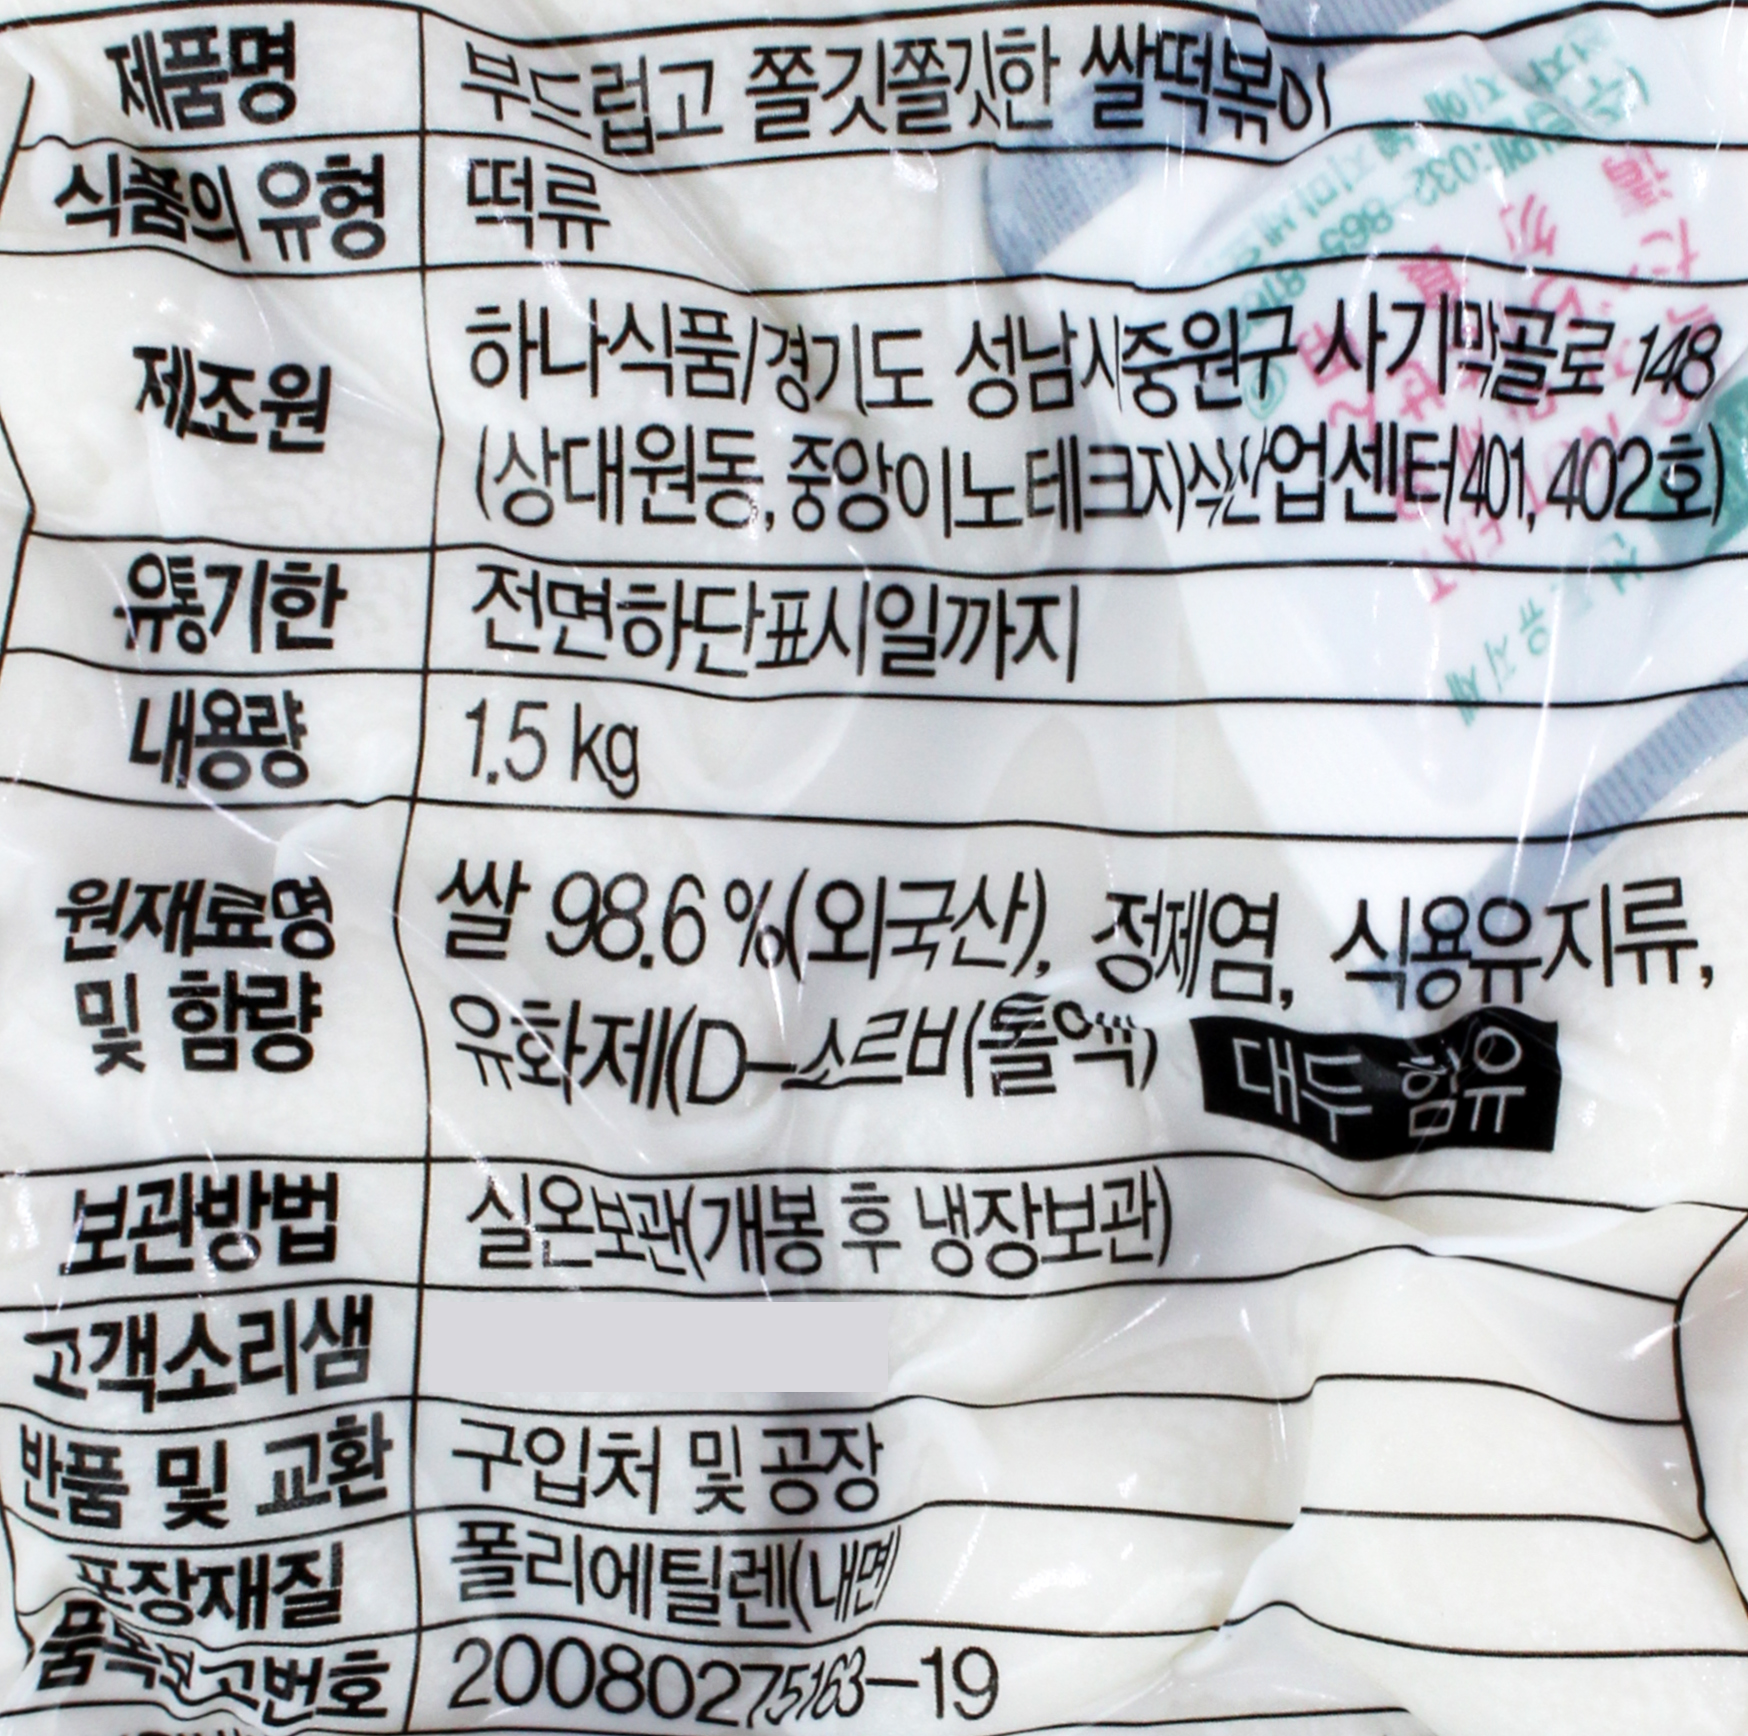 제품명 부드럽고 쫄깃쫄깃한 쌀떡볶이
식품의 유형 떡류
제조원 하나식품/경기도 성남시중원구 사기막골로 148
(상대원동, 중앙이노테크지식산업센터401, 402호)
유통기한 전면하단표시일까지
내용량 1.5 kg
원재료명 쌀 98.6 %(외국산), 정제염, 식용유지류,
및 함량 유화제(D-소르비톨액) 대두 함유
보관방법 실온보관(개봉 후 냉장보관)
고객소리샘
반품 및 교환 구입처 및 공장
포장재질 폴리에틸렌(내면)
품목보고번호 20080275163-19